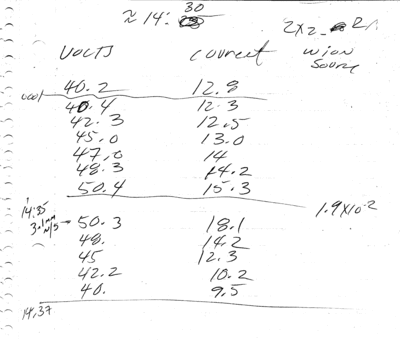 ≈ 14: 30
2x2
VOLTS current w ion
Source
40.2 12.8
40.4 12.3
42.3 12.5
45.0 13.0
47.0 14
48.3 14.2
50.4 15.3
14:35 1.9x10-2
3.1mm 50.3 18.1
N/S 48. 14.2
45 12.3
42.2 10.2
40. 9.5
14.37